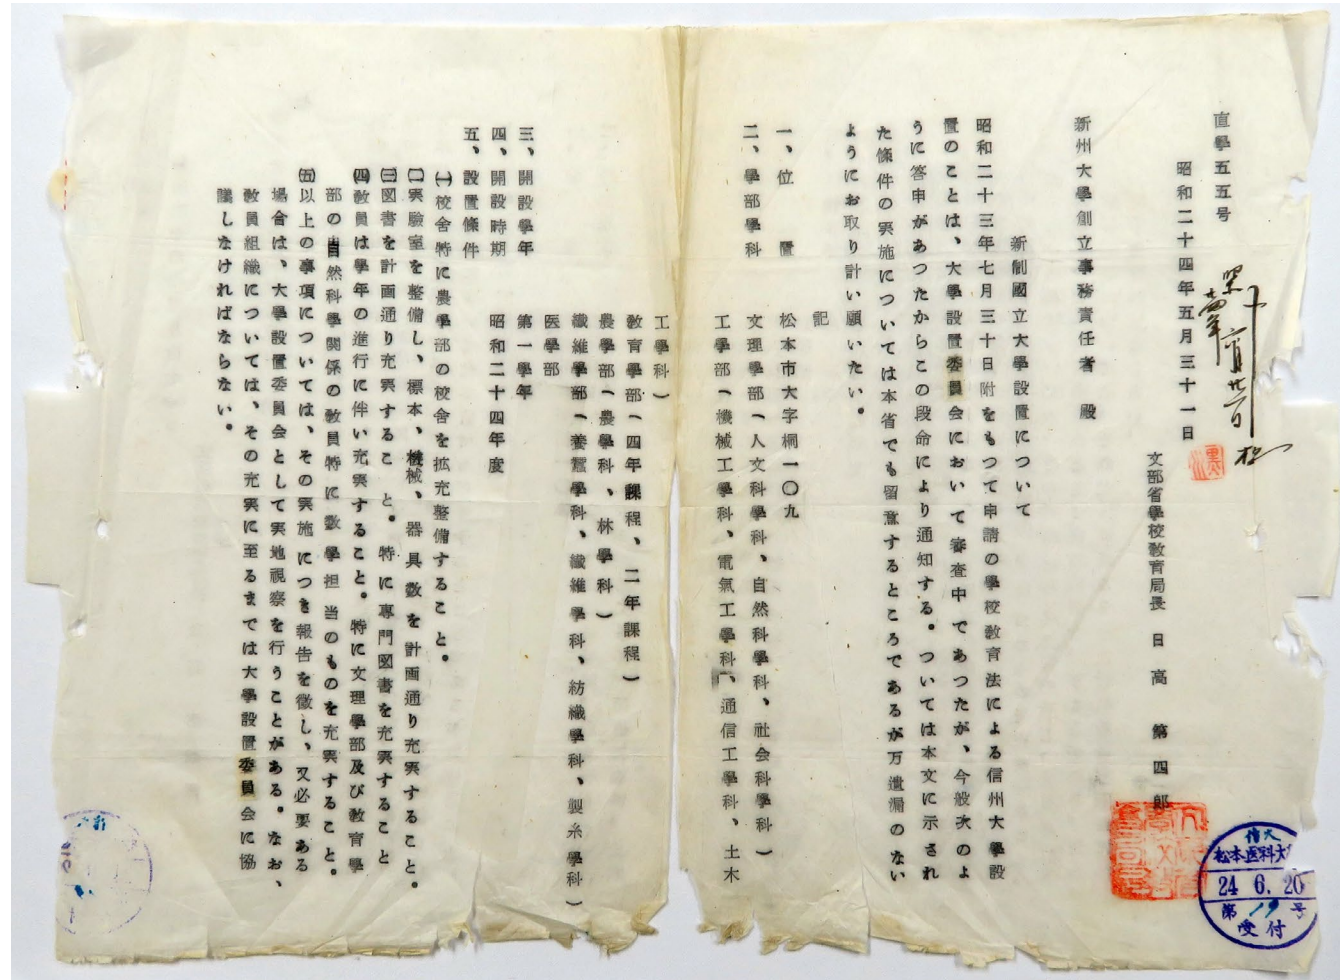 直學五五号
昭和二十四年五月三十一日
文部省學校教育局長　日高　第四郎
新州大學創立事務責任者　殿
新制國立大學設置について
昭和二十三年七月三十日附をもつて申請の學校教育法による信州大學設
置のことは、大學設置委員会において審査中であつたが、今般次のよ
うに答申があつたからこの段命により通知する。ついては本文に示され
た條件の実施については本省でも留意するところであるが万遺漏のない
ようにお取り計い願いたい。
記
一、位　置　松本市大字桐一〇九
二、學部學科　文理學部（人文科學科、自然科學科、社会科學科）
工學部（機械工學科、電氣工學科、通信工學科、土木
工學科）
教育學部（四年課程、二年課程）
農學部（農學科、林學科）
纖維學部（養蠶學科、纖維學科、紡織學科、製糸學科）
医學部
三、開設學年　第一學年
四、開設時期　昭和二十四年度
五、設置條件
(一)校舎特に農學部の校舎を拡充整備すること。
(二)実驗室を整備し、標本、機械、器具数を計画通り充実すること。
(三)図書を計画通り充実すること。特に専門図書を充実すること
(四)教員は學年の進行に伴い充実すること。特に文理學部及び教育學
部の自然科學関係の教員特に数學担当のものを充実すること。
(五)以上の事項については、その実施につき報告を徴し、又必要ある
場合は、大學設置委員会として実地視察を行うことがある。なお、
教員組織については、その充実に至るまでは大學設置委員会に協
議しなければならない。
信大
松本医科大
24 6. 20
第19号
受付